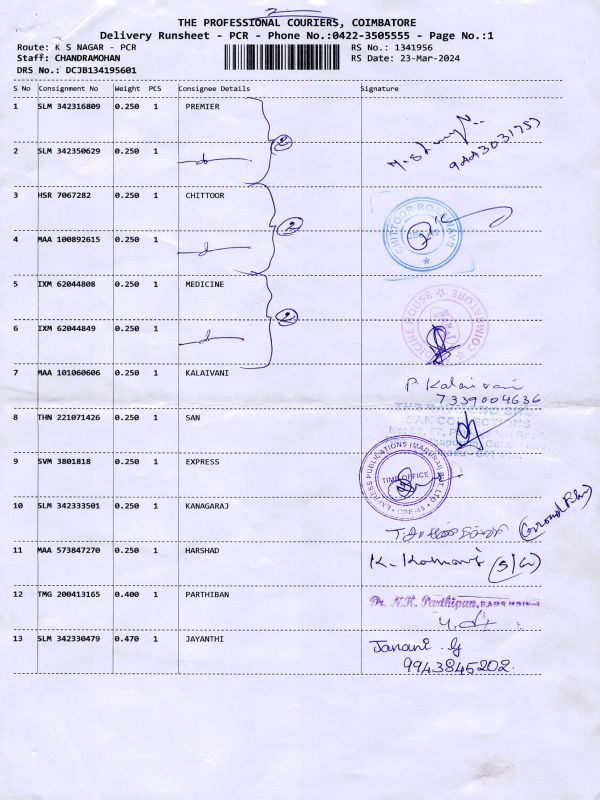 2
THE PROFESSIONAL COURIERS, COIMBATORE
Delivery Runsheet - PCR - Phone No.:0422-3505555 - Page No.:1
Route: K S NAGAR - PCR RS No.: 1341956
Staff: CHANDRAMOHAN RS Date: 23-Mar-2024
DRS No.: DCJB134195601
S No Consignment No Weight PCS Consignee Details Signature
1 SLM 342316809 0.250 1 PREMIER
2 SLM 342350629 0.250 1
3 HSR 7067282 0.250 1 CHITTOOR
CHITTOOR ROADWAYS
4 MAA 100892615 0.250 1
2
5 IXM 62044808 0.250 1 MEDICINE
MEDICINE HOUSE COIMBATORE
2
6 IXM 62044849 0.250 1
7 MAA 101060606 0.250 1 KALAIVANI P Kalaivani
7339004636
8 THN 221071426 0.250 1 SAN
9 SVM 3801818 0.250 1 EXPRESS
EXPRESS PUBLICATIONS (MADURAI) PVT LTD
TIME OFFICE
10 SLM 342333501 0.250 1 KANAGARAJ
11 MAA 573847270 0.250 1 HARSHAD
12 TMG 200413165 0.400 1 PARTHIBAN Dr. N.K. Parthipan,
13 SLM 342330479 0.470 1 JAYANTHI Janani. G
9943845202.